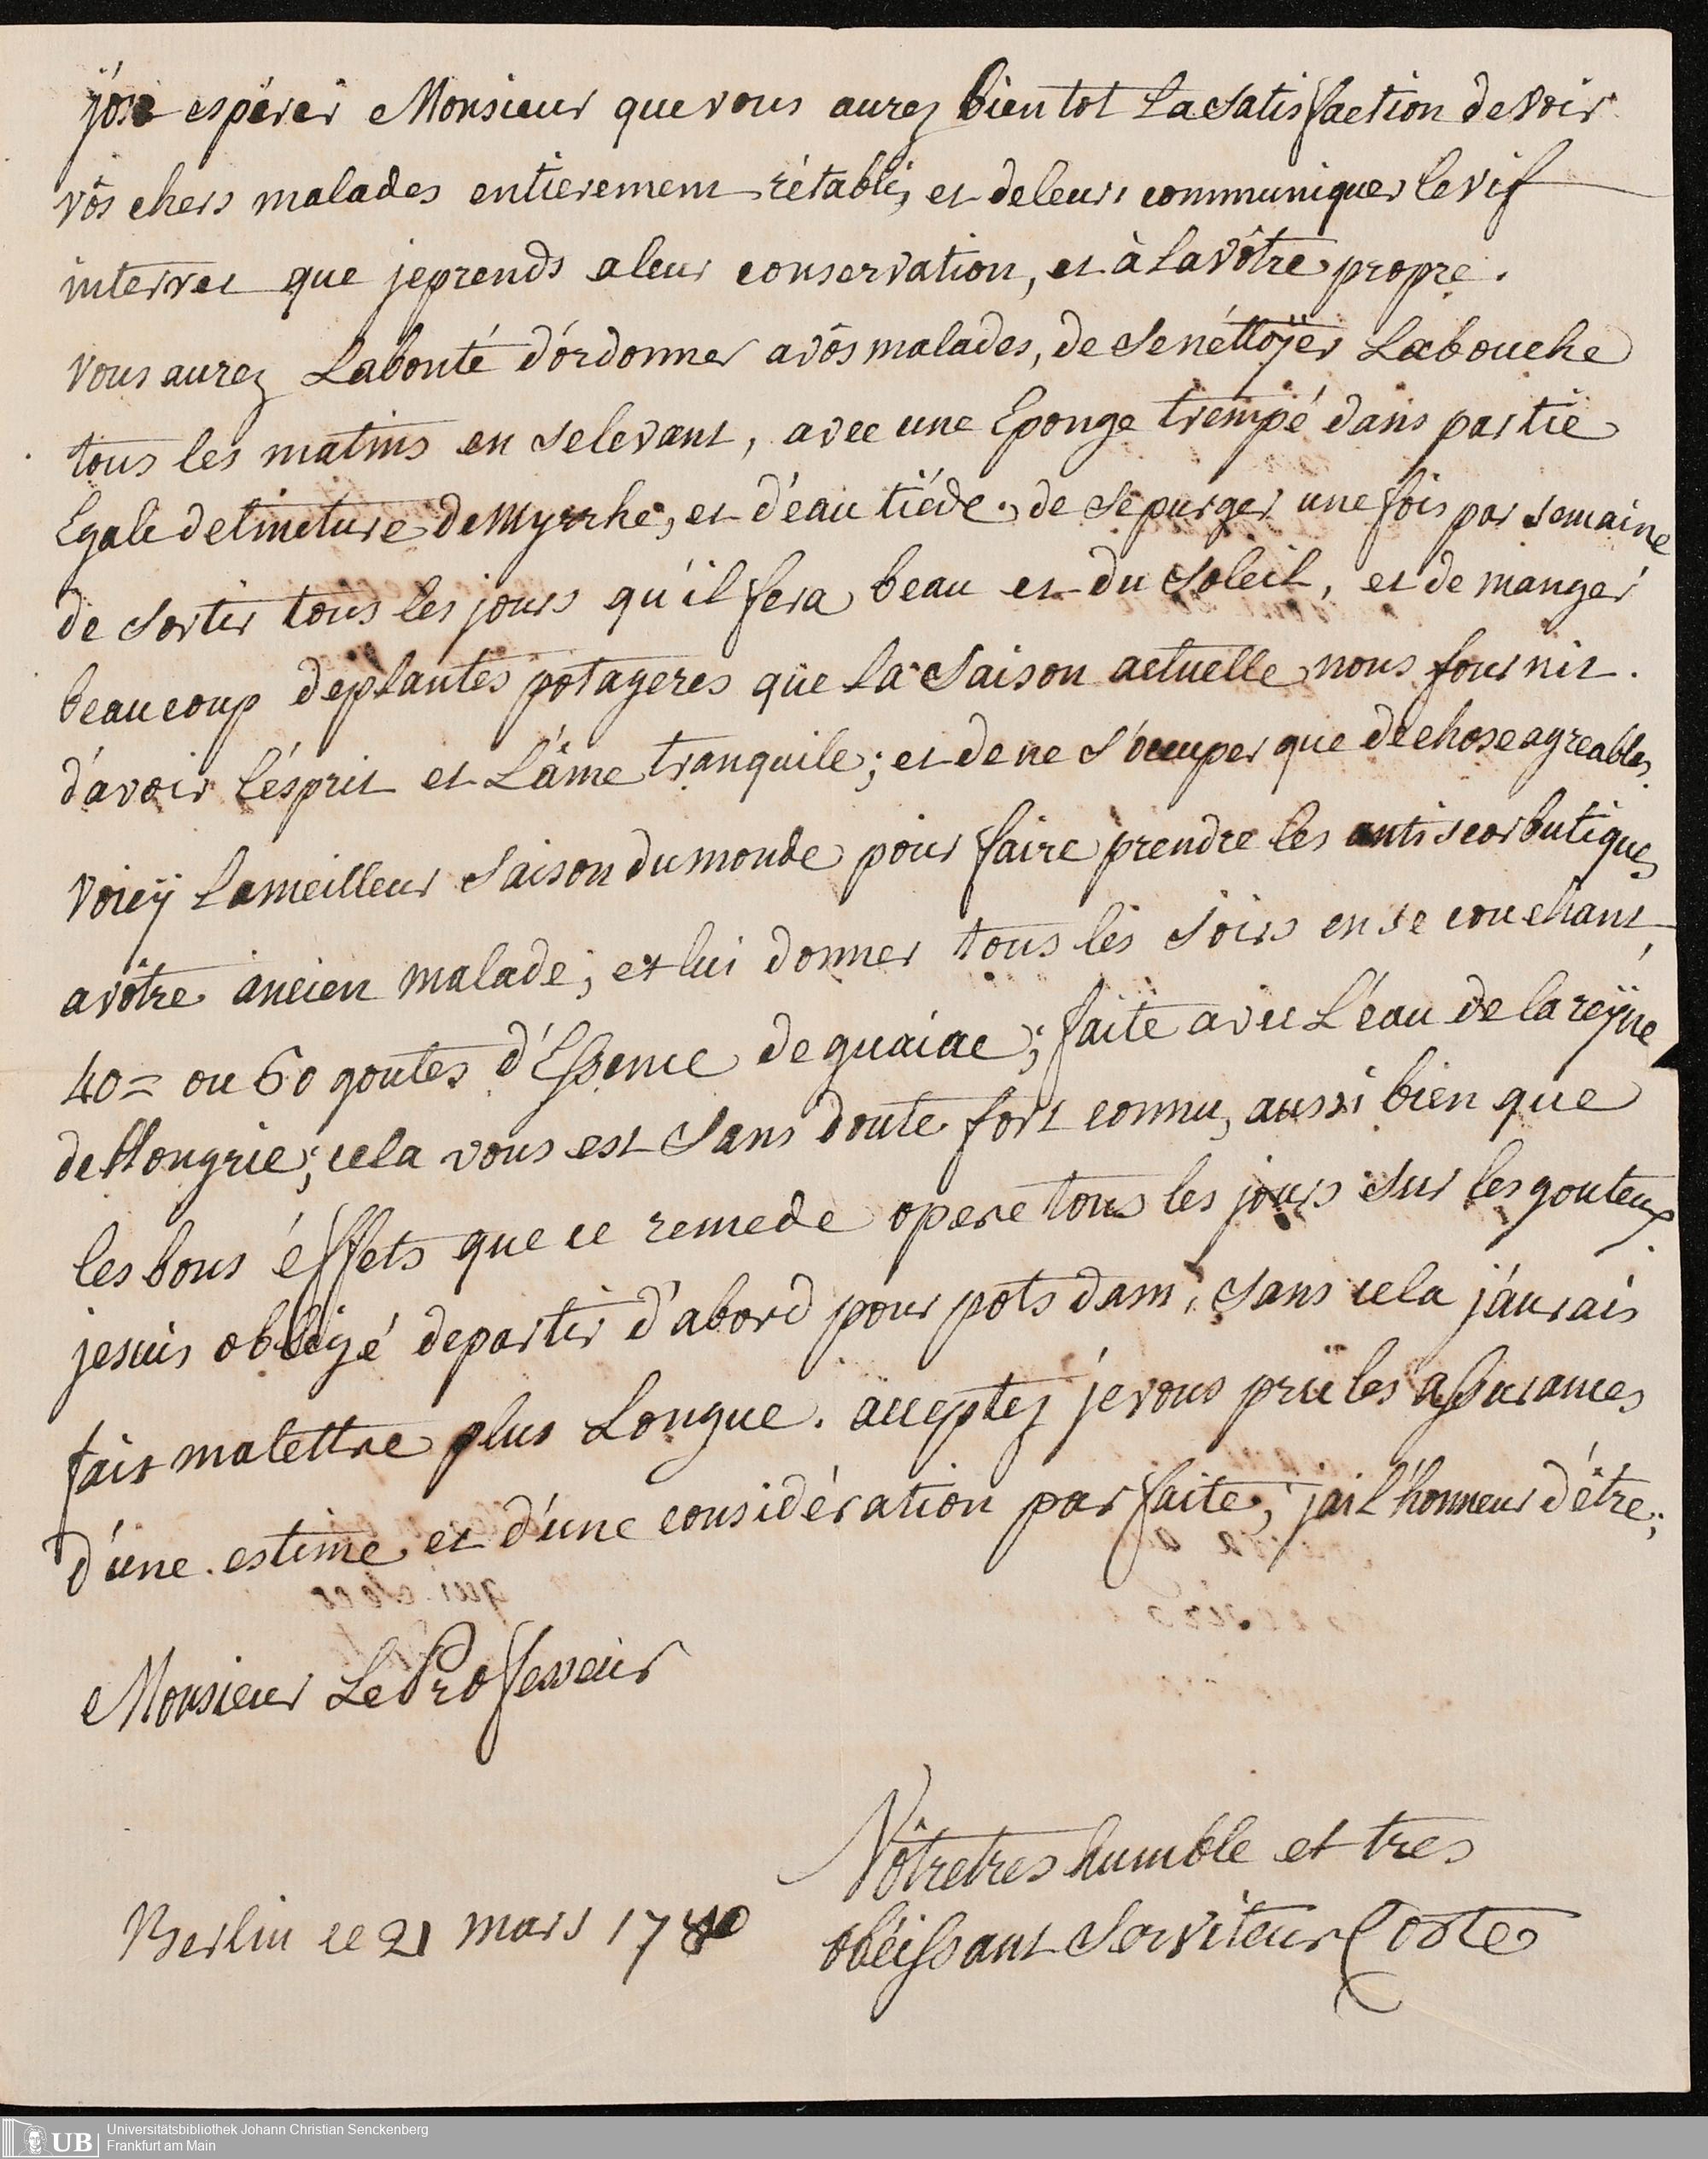 j'óse espérer Monsieur que vous aurez bientot La Satisfaction de voir
vôs chers malades entierement rétablis, et de leurs communiquer le vif
interret que je prends a leur conservation, et à la vôtre propre.
vous aurez La bonté d'órdonner a vôs malades, de Se néttoÿer La bouche
tous les matins en Se levant, avec une Eponge trempé dans partie
Egale de tincture de Myrrhe, et d'éau tiéde, de Se purger une fois par Semaine
de Sortir tous les jours qu'il fera beau et du Soleil, et de manger
beaucoup de plantes potageres que La Saison actuelle nous fournit.
d'avoir l'ésprit et L'âme tranquile; et de ne S'óccuper que de chose agreables
voicÿ La meilleur Saison du monde pour faire prendre les antiscorbutiques
a vôtre ancien malade; et lui donner tous les Soirs en se couchant
40= ou 60 goutes d'Essence de guaiac; faite avec L'éau de la reÿne
de Hongrie; cela vous est Sans doute fort connu, aussi bien que
les bons éffets que ce remede opere tous les jours Sur les gouteux.
je suis obligé de partir d'abord pour potsdam, Sans cela j'aurais
fait ma lettre plus Longue. acceptez je vous prie les assurances
d'une estime et d'une considération parfaite, j'ai l'honneur d'étre;
Monsieur Le Professeur
Vôtre tres humble et tres
obéissant Serviteur Coste
Berlin ce 21 mars 1780
UB
Universitätsbibliothek Johann Christian Senckenberg
Frankfurt am Main